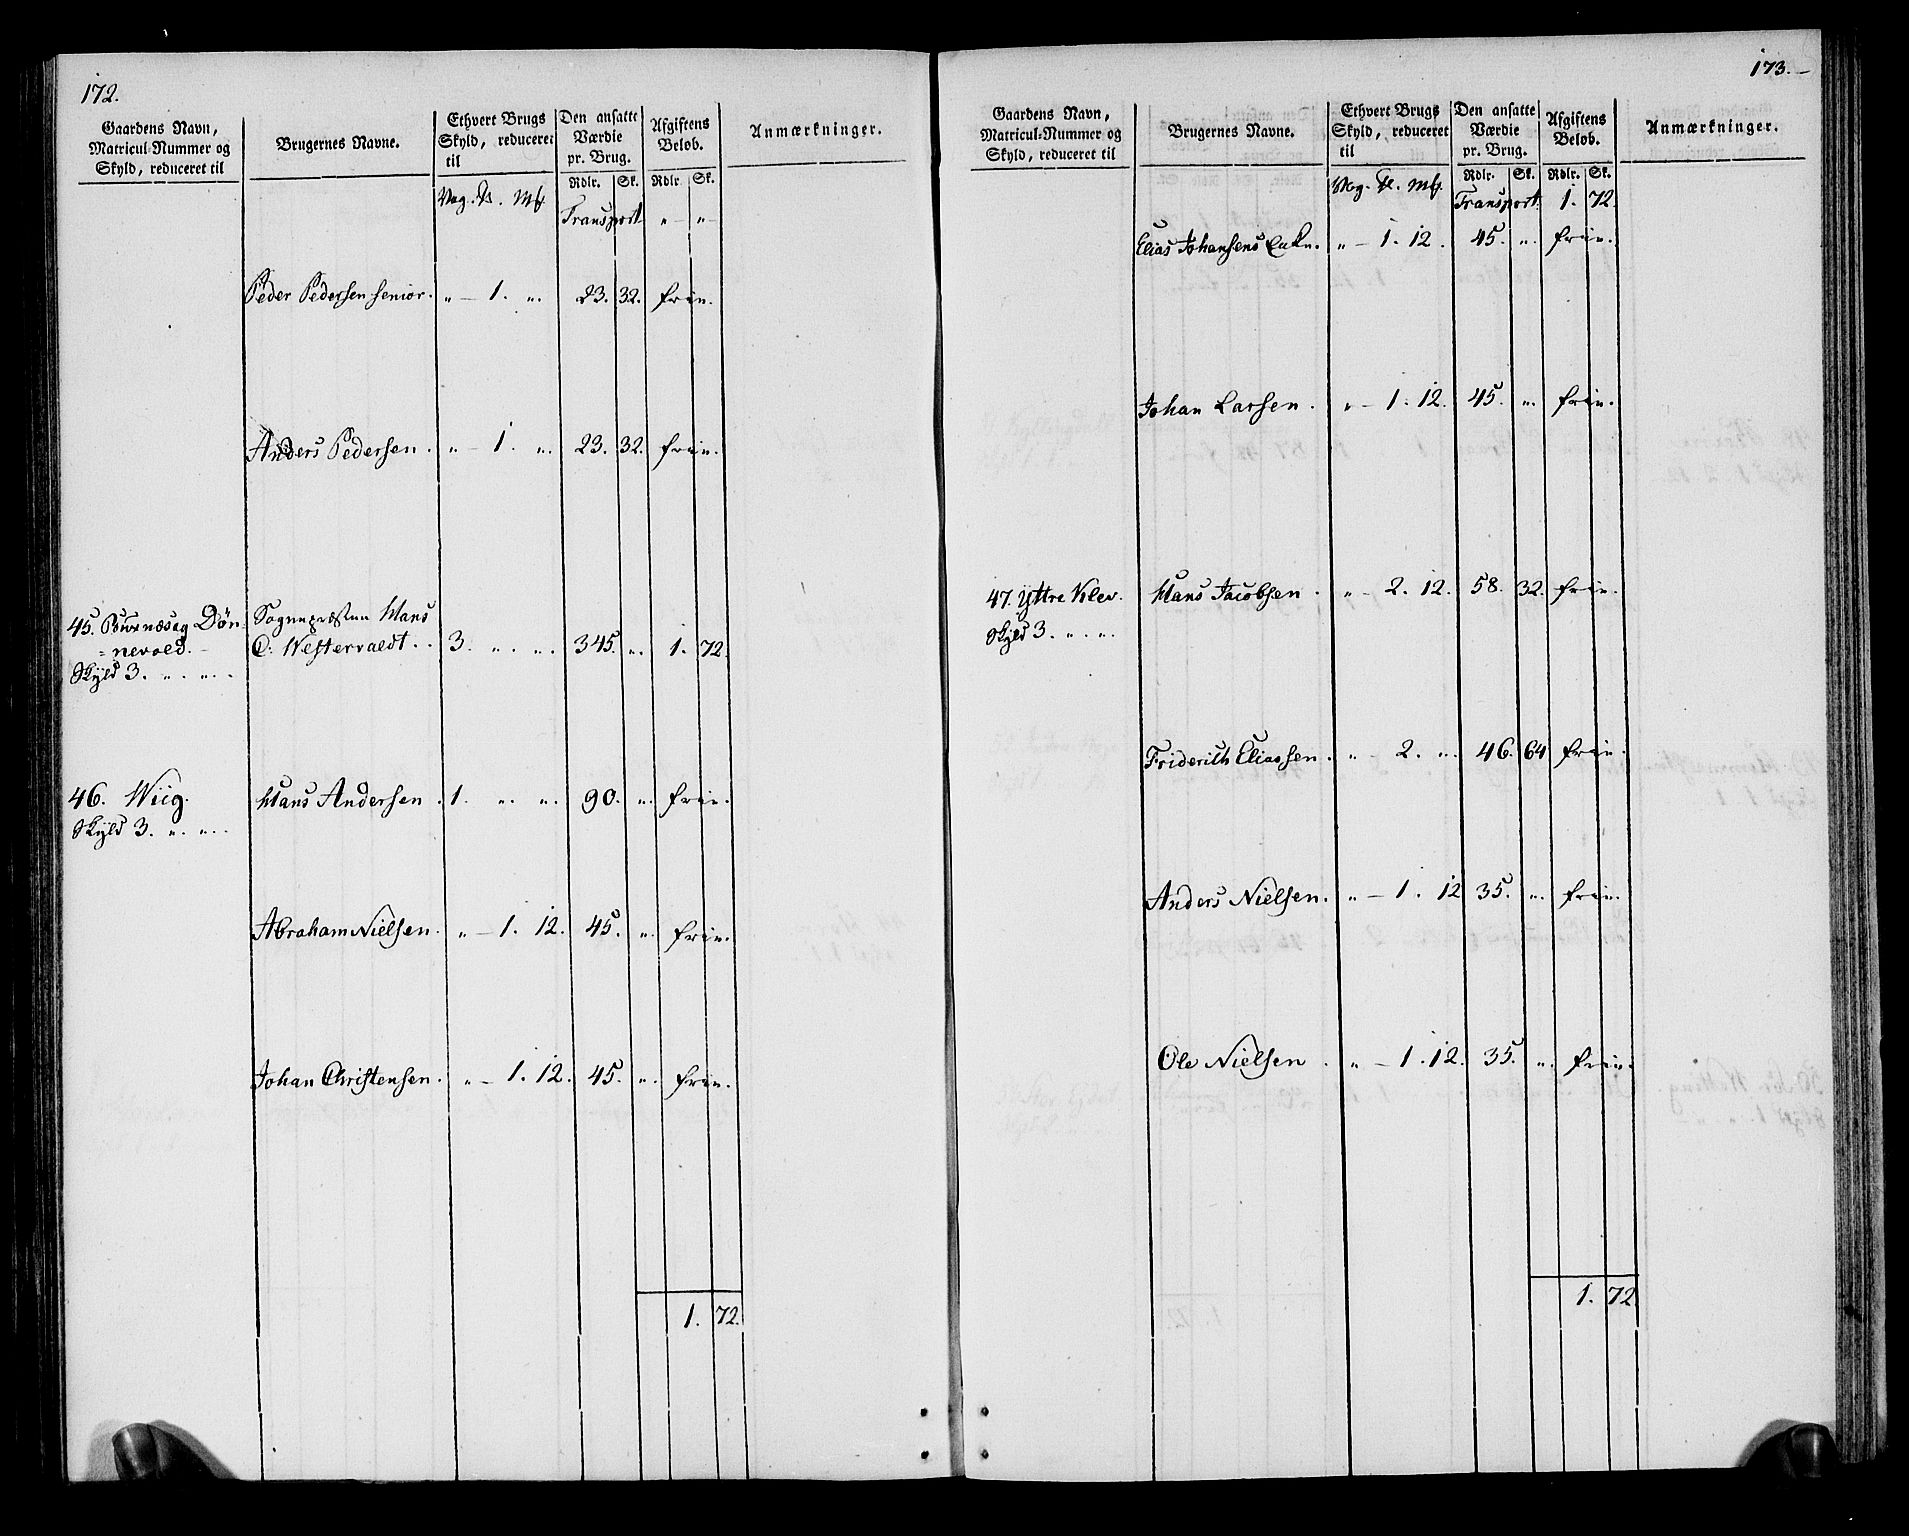 172.
Gaardens Navn, Matricul-Nummer og Skyld, reduceret til
Brugernes Navne.
Ethvert Brugs Skyld, reduceret til
Den ansatte Værdie pr. Brug.
Afgiftens Beløb.
Anmærkninger.
Rdlr. Sk. Rdlr. Sk.
Vog. ℔. Mk
Transport " — "
Peder Pedersen senior. " — 1. ". 23. 32. frie.
Anders Pedersen. " — 1. ". 23. 32. frie.
45. Døn-
Sognepræsten Hans
= nevold.
C: Westervaldt. . 3. ". ". 345. ". 1. 72.
Skyld 3. ". ". .
46. Wiig. Hans Andersen. 1. ". ". 90. ". frie.
Skyld 3. ". ". .
Abraham Nielsen. " — 1. 12. 45. ". frie.
Johan Christensen. " — 1. 12. 45. ". frie.
1. 72.
173. —
Gaardens Navn, Matricul-Nummer og Skyld, reduceret til
Brugernes Navne.
Ethvert Brugs Skyld, reduceret til
Den ansatte Værdie pr. Brug.
Afgiftens Beløb.
Anmærkninger.
Rdlr. Sk. Rdlr. Sk.
Vog. ℔. Mk
Transport 1. 72.
Elias Johansens Enke. " — 1. 12. 45. ". frie.
Johan Larsen. " — 1. 12. 45. ". frie.
47. Yttre Klev. Hans Jacobsen. " — 2. 12. 58. 32. frie.
Skyld 3. ". ".
Friderich Eliassen. " — 2. ". 46. 64 frie.
Anders Nielsen. " — 1. 12 35. ". frie.
Ole Nielsen. " — 1. 12. 35. ". frie.
1. 72.